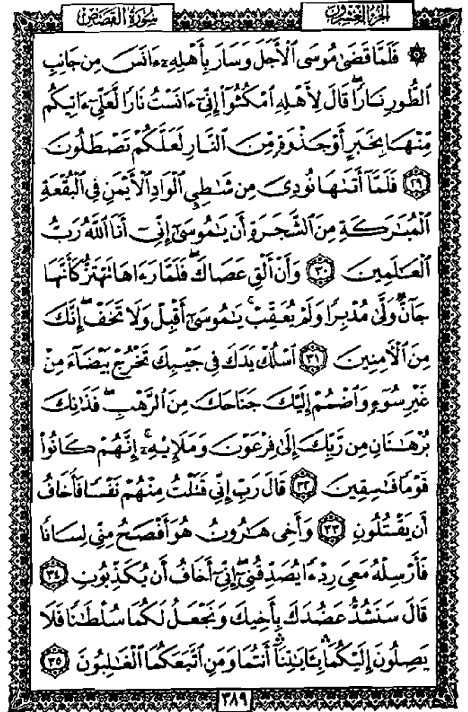 سُورَةُ القَصَصِ
الجُزْءُ العِشْرُونَ
۞ فَلَمَّا قَضَىٰ مُوسَى ٱلْأَجَلَ وَسَارَ بِأَهْلِهِۦٓ ءَانَسَ مِن جَانِبِ
ٱلطُّورِ نَارًاۖ قَالَ لِأَهْلِهِ ٱمْكُثُوٓا۟ إِنِّىٓ ءَانَسْتُ نَارًا لَّعَلِّىٓ ءَاتِيكُم
مِّنْهَا بِخَبَرٍ أَوْ جَذْوَةٍ مِّنَ ٱلنَّارِ لَعَلَّكُمْ تَصْطَلُونَ
﴿٢٩﴾ فَلَمَّآ أَتَىٰهَا نُودِىَ مِن شَٰطِئِ ٱلْوَادِ ٱلْأَيْمَنِ فِى ٱلْبُقْعَةِ
ٱلْمُبَٰرَكَةِ مِنَ ٱلشَّجَرَةِ أَن يَٰمُوسَىٰٓ إِنِّىٓ أَنَا ٱللَّهُ رَبُّ
ٱلْعَٰلَمِينَ ﴿٣٠﴾ وَأَنْ أَلْقِ عَصَاكَۖ فَلَمَّا رَءَاهَا تَهْتَزُّ كَأَنَّهَا
جَآنٌّ وَلَّىٰ مُدْبِرًا وَلَمْ يُعَقِّبْۚ يَٰمُوسَىٰٓ أَقْبِلْ وَلَا تَخَفْۖ إِنَّكَ
مِنَ ٱلْءَامِنِينَ ﴿٣١﴾ ٱسْلُكْ يَدَكَ فِى جَيْبِكَ تَخْرُجْ بَيْضَآءَ مِنْ
غَيْرِ سُوٓءٍ وَٱضْمُمْ إِلَيْكَ جَنَاحَكَ مِنَ ٱلرَّهْبِۖ فَذَٰنِكَ
بُرْهَٰنَانِ مِن رَّبِّكَ إِلَىٰ فِرْعَوْنَ وَمَلَإِي۟هِۦٓۚ إِنَّهُمْ كَانُوا۟
قَوْمًا فَٰسِقِينَ ﴿٣٢﴾ قَالَ رَبِّ إِنِّى قَتَلْتُ مِنْهُمْ نَفْسًا فَأَخَافُ
أَن يَقْتُلُونِ ﴿٣٣﴾ وَأَخِى هَٰرُونُ هُوَ أَفْصَحُ مِنِّى لِسَانًا
فَأَرْسِلْهُ مَعِىَ رِدْءًا يُصَدِّقُنِىٓۖ إِنِّىٓ أَخَافُ أَن يُكَذِّبُونِ ﴿٣٤﴾
قَالَ سَنَشُدُّ عَضُدَكَ بِأَخِيكَ وَنَجْعَلُ لَكُمَا سُلْطَٰنًا فَلَا
يَصِلُونَ إِلَيْكُمَاۚ بِـَٔايَٰتِنَآ أَنتُمَا وَمَنِ ٱتَّبَعَكُمَا ٱلْغَٰلِبُونَ ﴿٣٥﴾
٣٨٩